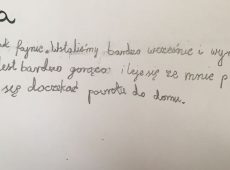 a
fajnie. Wstaliśmy bardzo wcześnie i
jest bardzo gorąco i leje się ze mnie p
się doczekać powrotu do domu.